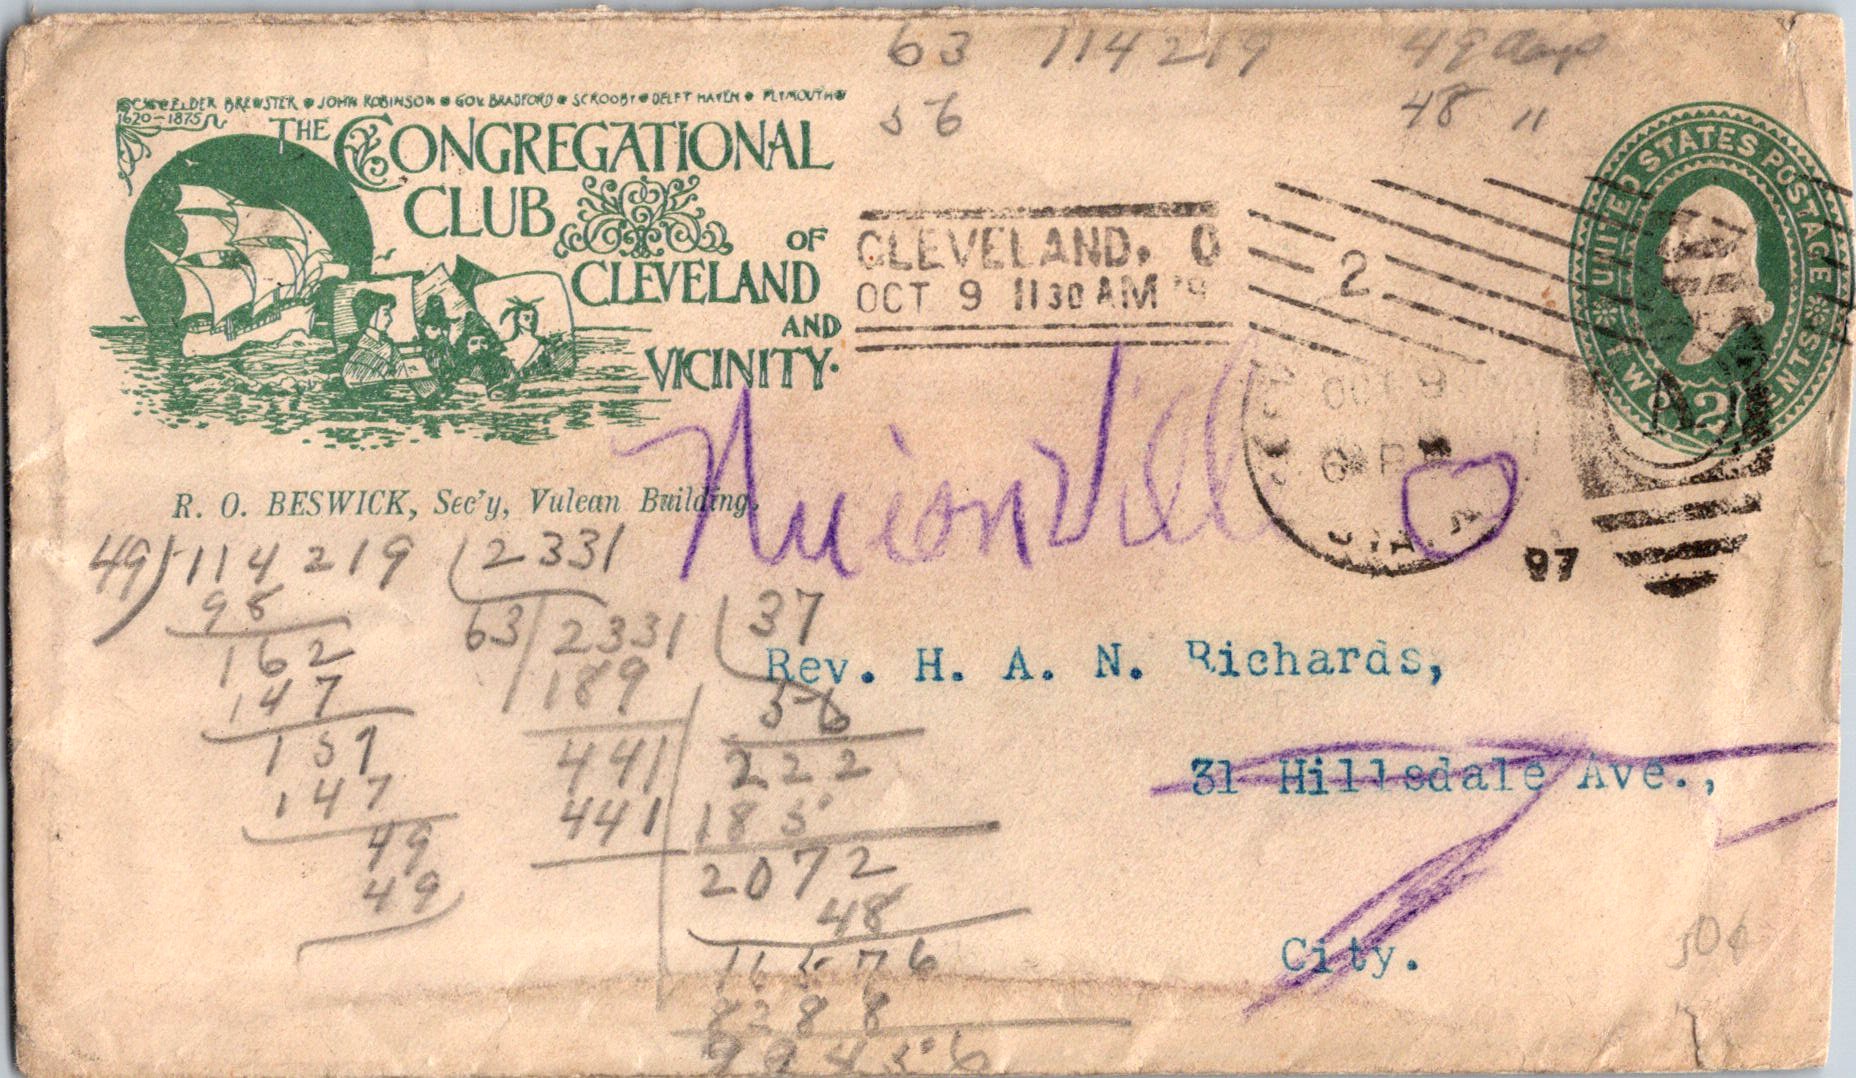 63 114219 49 days
56 48 "
ELDER BREWSTER • JOHN ROBINSON • GOV. BRADFORD • SCROOBY • DELFT HAVEN • PLYMOUTH
1620-1875
THE CONGREGATIONAL
CLUB
OF
CLEVELAND
AND
VICINITY.
R. O. BESWICK, Sec'y, Vulcan Building.
CLEVELAND. O
OCT 9 1130 AM
2
UNITED STATES POSTAGE
TWO CENTS
2
OCT 9
6
97
O
49) 114219 (2331
98
162
147
151
147
49
49
63 2331 (37
189
441
441
56
222
185
2072
48
16576
8288
99456
Rev. H. A. N. Richards,
31 Hillsdale Ave.,
City.
50¢